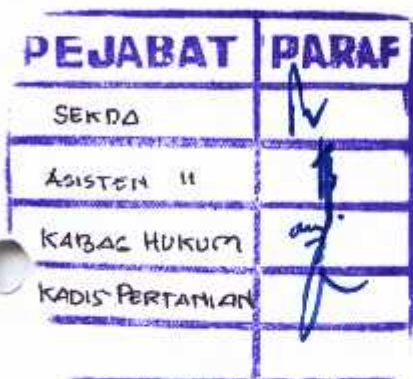 PEJABAT PARAF
SEKDA
ASISTEN II
KABAG HUKUM
KADIS PERTANIAN